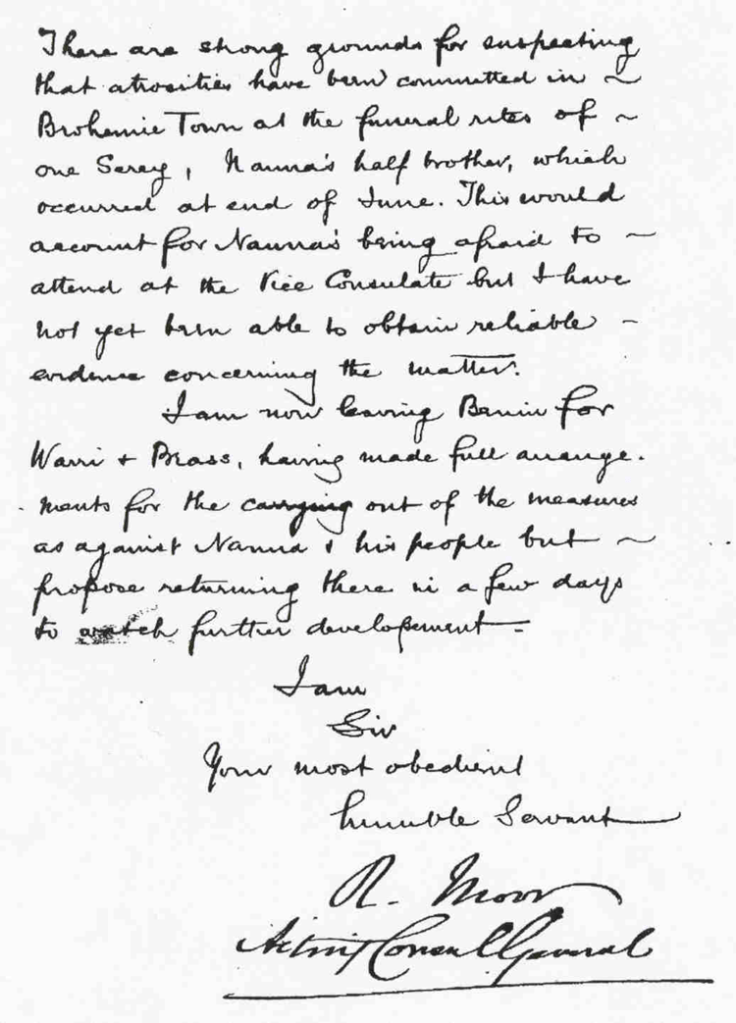 There are strong grounds for suspecting
that atrocities have been committed in ~
Brohemie Town at the funeral rites of ~
one Serey, Nanna's half brother, which
occurred at end of June. This would
account for Nanna's being afraid to ~
attend at the Vice Consulate but I have
not yet been able to obtain reliable -
evidence concerning the matter.
I am now leaving Benin for
Warri + Brass, having made full arrange-
ments for the carrying out of the measures
as against Nanna & his people but ~
propose returning there in a few days
to watch further development -
I am
Sir
Your most obedient
humble Servant
R. Moor
Acting Consul General